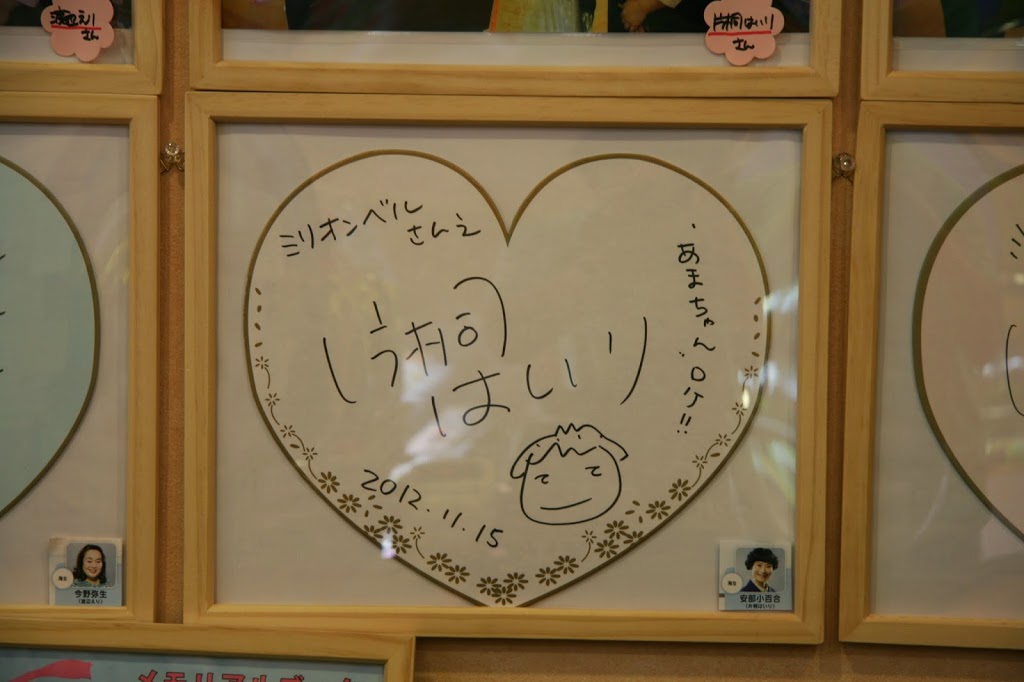 渡辺えり
さん
片桐はいり
さん
ミリオンベル
さんえ
あまちゃん.ロケ!!
片桐
はいり
2012.11.15
海女
今野弥生
(渡辺えり)
海女
安部小百合
(片桐はいり)